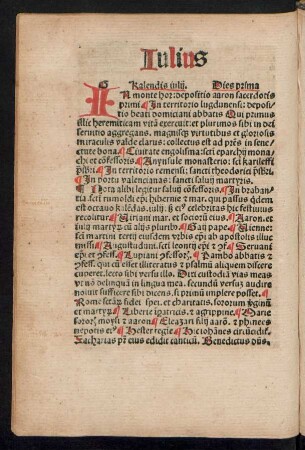 Iulius
Kalendis iulij. Dies prima
IN monte hor: depositio aaron sacerdotis
primi ¶ In territorio lugdunensi: deposi-
tio beati domiciani abbatis Qui primus
illic heremiticam vitā exercuit et plurimos sibi in dei
seruitio aggregans. magnisqȝ virtutibus et gloriosis
miraculis valde clarus: collectus est ad pr̄es in senec-
tute bona ¶ Ciuitate engolisma: sc̄i eparchij mona-
chi et cōfessoris ¶ Anysule monasterio: sc̄i karileffi
p̄sbri ¶ In territorio remensi: sancti theodorici p̄sbri
¶ In portu valencianas: sancti saluij martyris.
¶ Nota alibi legitur saluij cōfessoris. ¶ In braban-
tia: sc̄i rumoldi ep̄i hibernie et mar. qui passus qidem
est octauo kaledas. iulij. sꝫ eius hic festiuitas
recolitur ¶ Siriani mar. et sociorū eius. ¶ Aaron. et
iulij martyrū cū alijs plurib9 ¶ Gaij pape ¶ Vienne:
sc̄i martini tertij eiusdem vrbis ep̄i ab apostolis illuc
missi ¶ Augustiduni: sc̄i leontij ep̄i ¶ Seruani
ep̄i et ꝯfess. ¶ Lupiani ꝯfessoris. ¶ Pambo abbatis et
ꝯfess. qui cū esset illiteratus et psalmū aliquem discere
cuperet. lecto sibi versu illo. Dixi custodiā vias meas
vt nō delinquā in lingua mea. secundū versuȝ audire
noluit sufficere sibi dicens. si primū implere posset. ¶
Rome: sctārȝ fidei spei. et charitatis. sororum virginū
et martyrȝ ¶ Liberie ipatricis. et agrippine. ¶ Marie
sororȝ moysi et aaron ¶ Eleazari filij aarō. et phinees
nepotis eiꝰ ¶ Hester regie ¶ Hic iohānes circūcidit̄
Zacharias pr̄ eius edidit canticū. Benedictus dn̄s.